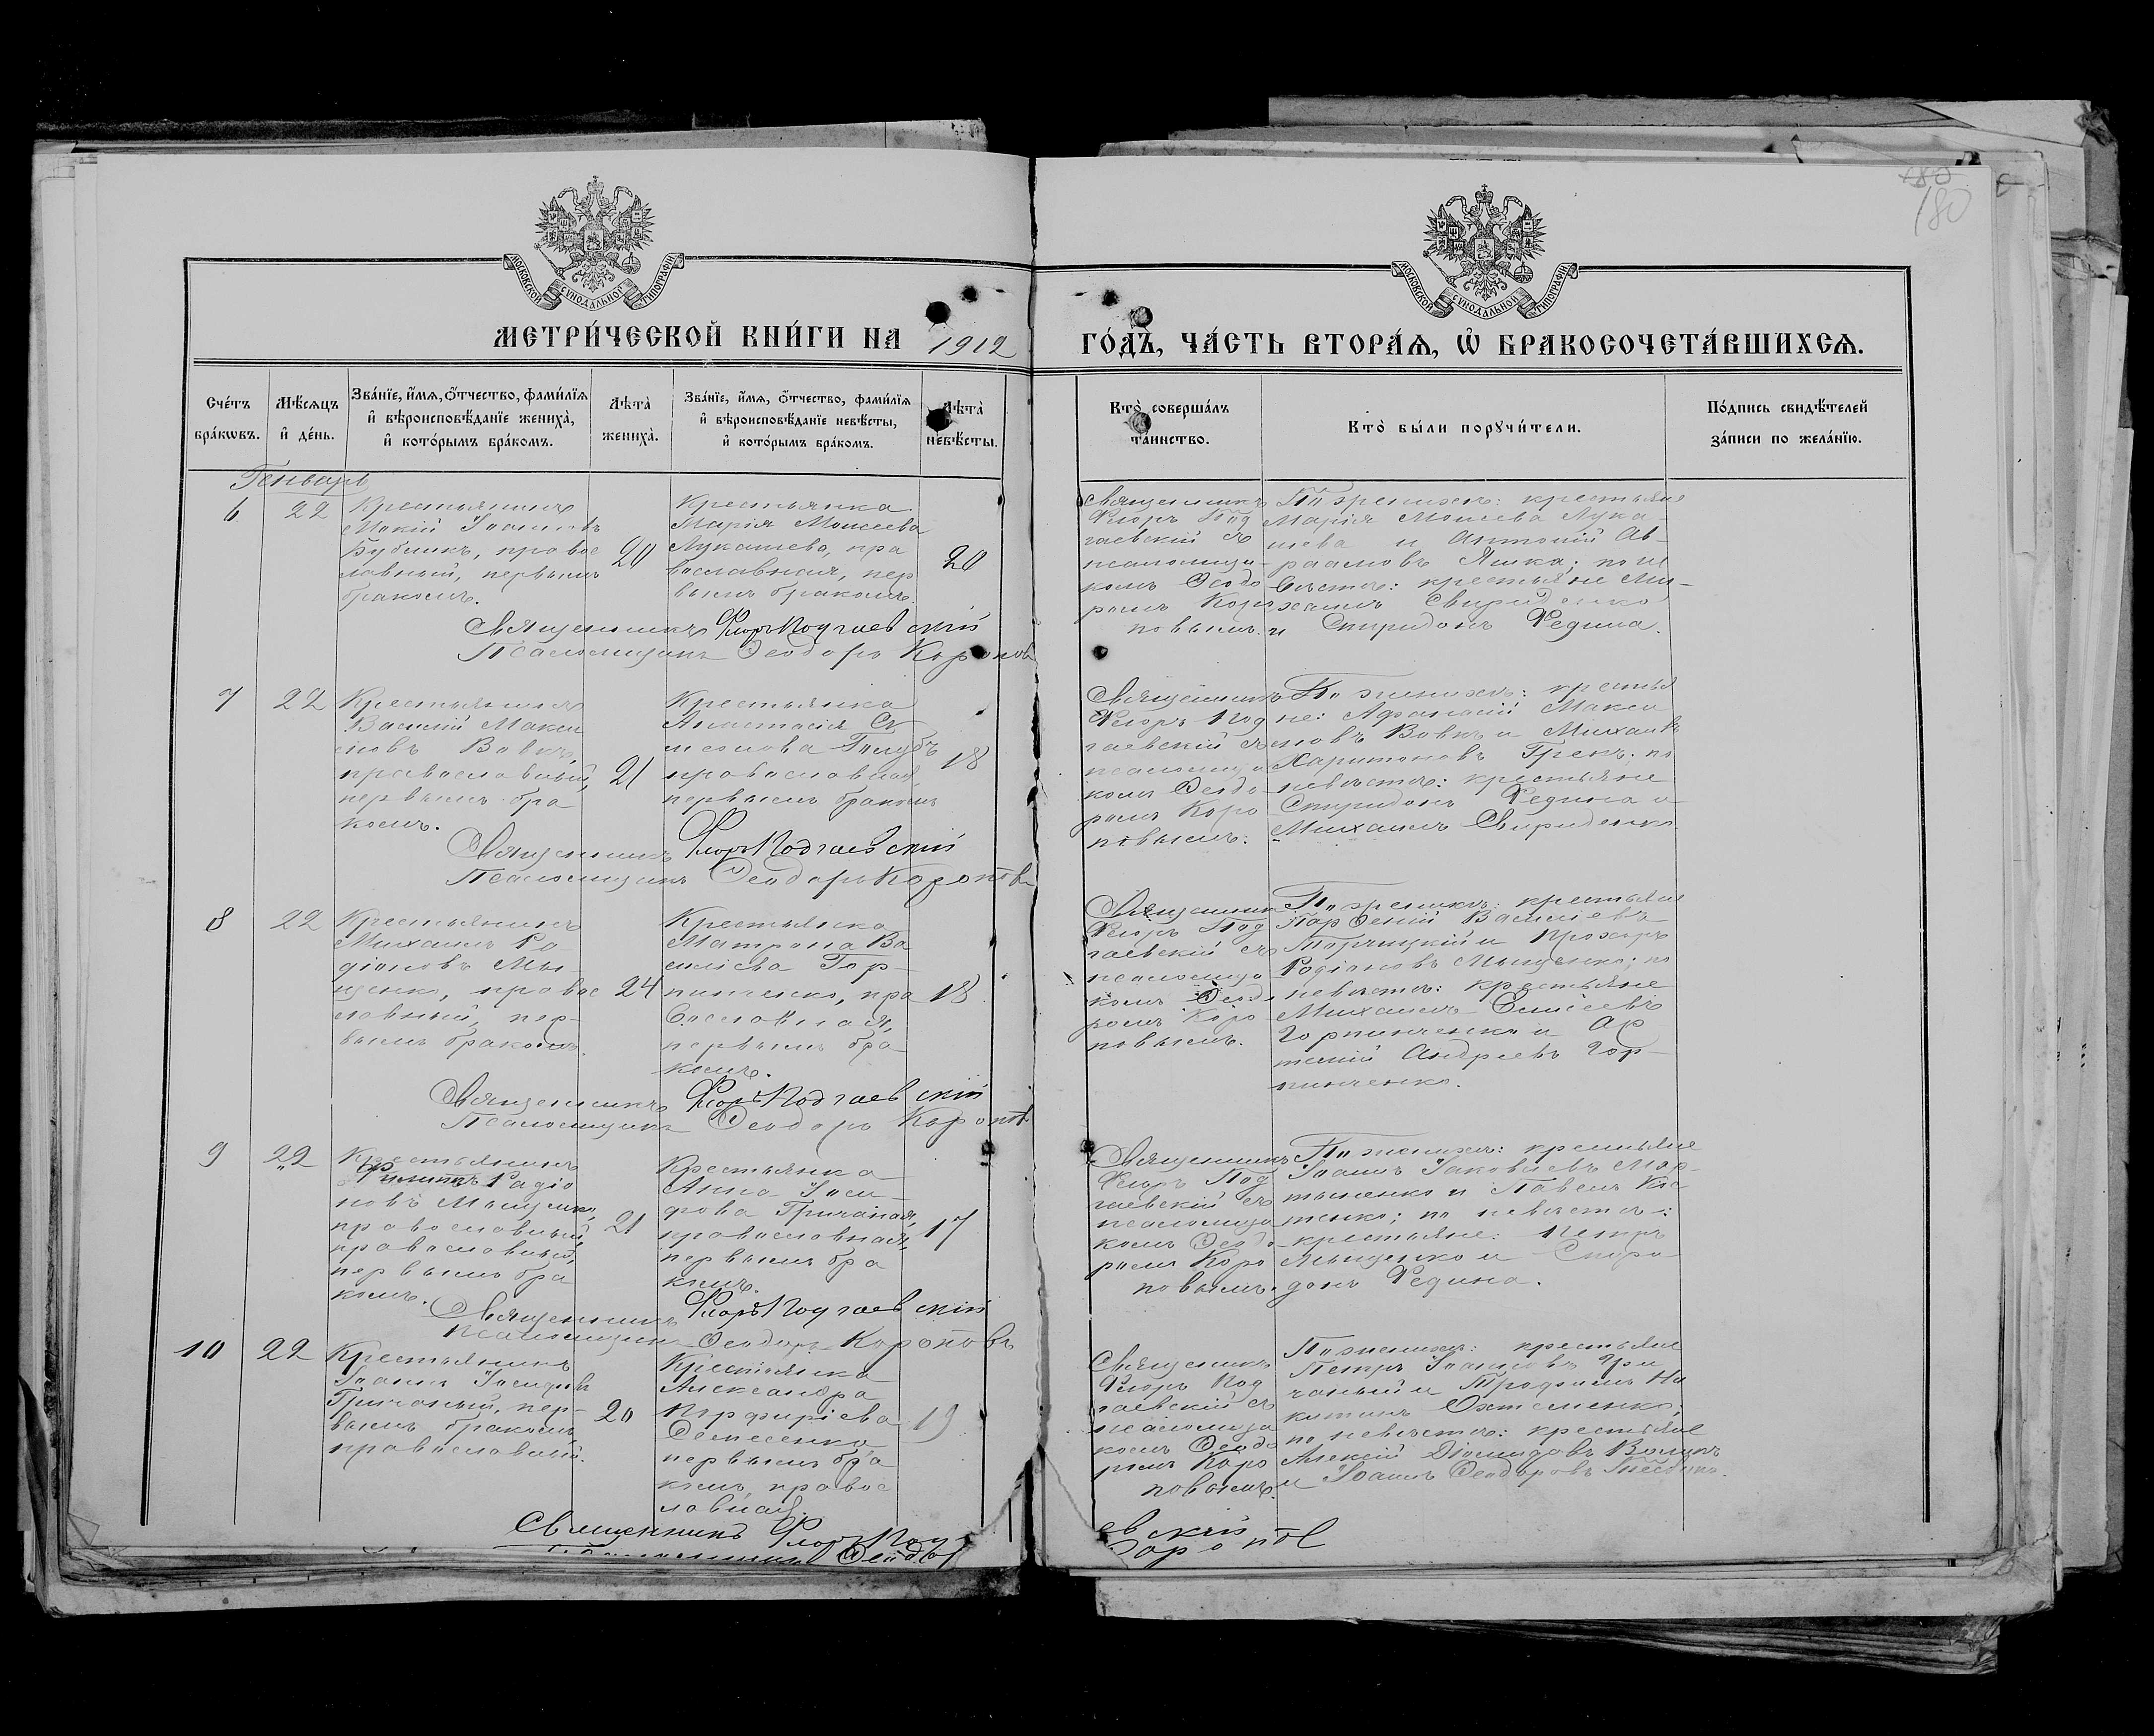 180
180
МОСКОВСКОЙ СѴНОДАЛЬНОЙ ТИПОГРАФІИ
МОСКОВСКОЙ СѴНОДАЛЬНОЙ ТИПОГРАФІИ
МЕТРИ́ЧЕСКОЙ КНИ́ГИ НА 1912
ГО́ДЪ, ЧА́СТЬ ВТОРА́Я, Ѡ БРАКОСОЧЕТА́ВШИХСЯ.
Сче́тъ бра́кѡвъ.
Мѣ́сяцъ и де́нь.
Зва́нїе, и́мя, ѻ́тчество, фами́лїя и вѣроисповѣ́данїе жениха̀, и кото́рымъ бра́комъ.
Лѣта̀ жениха̀.
Зва́нїе, и́мя, ѻ́тчество, фами́лїя и вѣроисповѣ́данїе невѣ́сты, и кото́рымъ бра́комъ.
Лѣта̀ невѣ́сты.
Кто̀ соверша́лъ та́инство.
Кто̀ бы́ли порꙋчи́тели.
По́дпись свидѣ́телей за́писи по жела́нїю.
Генварь
6
22
Крестьянинъ
Мокій Іоанновъ
Бубликъ, правос
лавный, первымъ
бракомъ.
20
Крестьянка
Марія Моисеева
Лукашева, пра
вославная, пер
вымъ бракомъ.
20
Священникъ
Флоръ Под
гаевскій съ
псаломщи-
комъ Ѳеодо
ромъ Коро
повымъ.
По женихѣ: крестьяне
Марія Моисеева Лука-
шева и Антоній Ав-
раамовъ Яшка; по не
вѣстѣ: крестьяне Ми-
хаилъ Свириденко
и Спиридонъ Редина.
Священникъ Флоръ Подгаевскій
Псаломщикъ Ѳеодоръ Короповъ
7
22
Крестьянинъ
Василій Макси
мовъ Вовкъ,
православный,
первымъ бра
комъ.
21
Крестьянка
Анастасія Си
меонова Голубъ
православная,
первымъ бракомъ
18
Священникъ
Флоръ Под
гаевскій съ
псаломщи
комъ Ѳеодо
ромъ Коро
повымъ.
По женихѣ: крестья
не: Афанасій Макси
мовъ Вовкъ и Михаилъ
Харитоновъ Грекъ; по
невѣстѣ: крестьяне
Спиридонъ Редина и
Михаилъ Свириденко.
Священникъ Флоръ Подгаевскій
Псаломщикъ Ѳеодоръ Короповъ
8
22
Крестьянинъ
Михаилъ Ро
діоновъ Мы
щенко, правос
лавный, пер-
вымъ бракомъ.
24
Крестьянка
Матрона Ва
силіева Гор-
пинченко, пра
вославная,
первымъ бра
комъ.
18
Священникъ
Флоръ Под
гаевскій съ
псаломщи
комъ Ѳеодо
ромъ Коро
повымъ.
По женихѣ: крестьяне
Парѳеній Василіевъ
и Прохоръ
Родіоновъ Мыщенко; по
невѣстѣ: крестьяне
Михаилъ
Горпинченко и Ар
темій Андреевъ Гор-
пинченко.
Священникъ Флоръ Подгаевскій
Псаломщикъ Ѳеодоръ Короповъ
9
22
Крестьянинъ
Родіо
новъ Мыщенко,
православный,
православный,
первымъ бра
комъ.
21
Крестьянка
Анна Іоси-
фова Гричаная,
православная,
первымъ бра
комъ.
17
Священникъ
Флоръ Под
гаевскій съ
псаломщи
комъ Ѳеодо-
ромъ Коро
повымъ.
По женихѣ: крестьяне
Іоаннъ Іаковлевъ Мар-
тыненко и Павелъ Кос
тенко; по невѣстѣ:
крестьяне: Петръ
Мыщенко и Спири
донъ Редина.
Священникъ Флоръ Подгаевскій
Псаломщикъ Ѳеодоръ Короповъ
10
22
Крестьянинъ
Іоаннъ Іосифовъ
Гричаный, пер-
вымъ бракомъ,
православный.
20
Крестьянка
Александра
Порфиріева
первымъ бра
комъ, правос
лавная.
19
Священникъ
Флоръ Под
гаевскій съ
псаломщи
комъ Ѳеодо
ромъ Коро
повымъ.
По женихѣ: крестьяне
Петръ Іоанновъ Гри
чаный и Трофимъ Ни
китинъ
по невѣстѣ: крестьяне
Алексій Діомидовъ
и Іоаннъ Ѳеодоровъ
Священникъ Флоръ Подгаевскій
Псаломщикъ Ѳеодоръ Короповъ